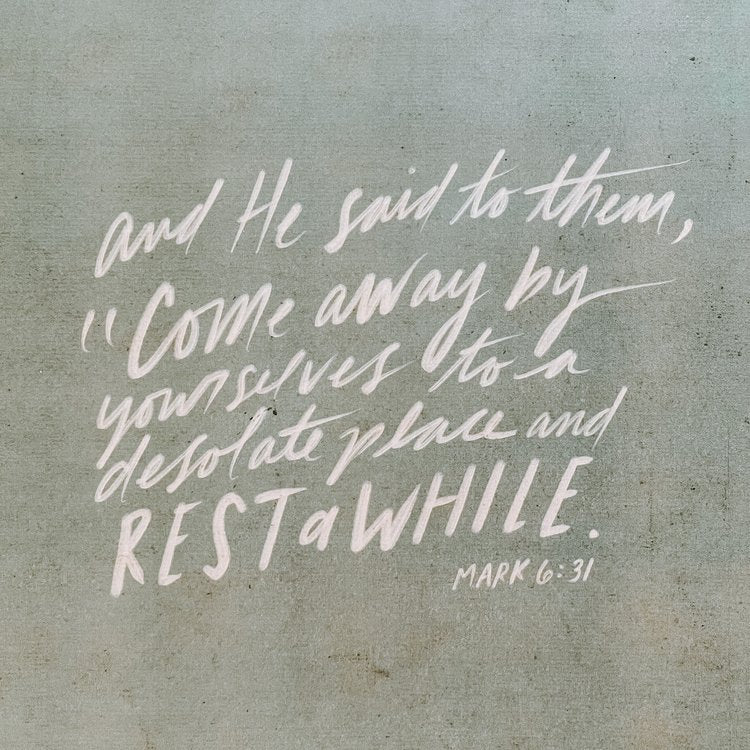 and He said to them,
"Come away by
yourselves to a
desolate place and
REST a WHILE.
MARK 6:31